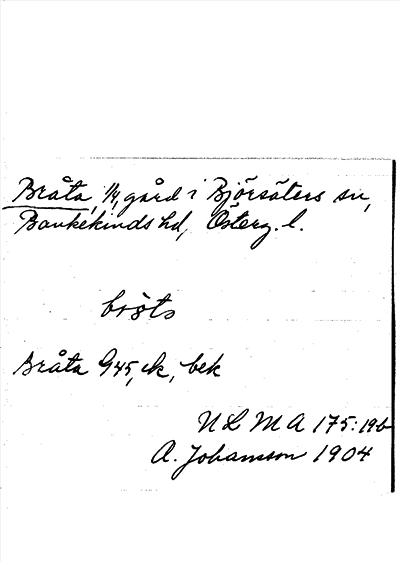 Bråta, 1/4 gård i Björsäters sn,
Bankekinds hd, Österg. l.
Bråta G45, ek, bek
N L M A 175:19b
A. Johansson 1904